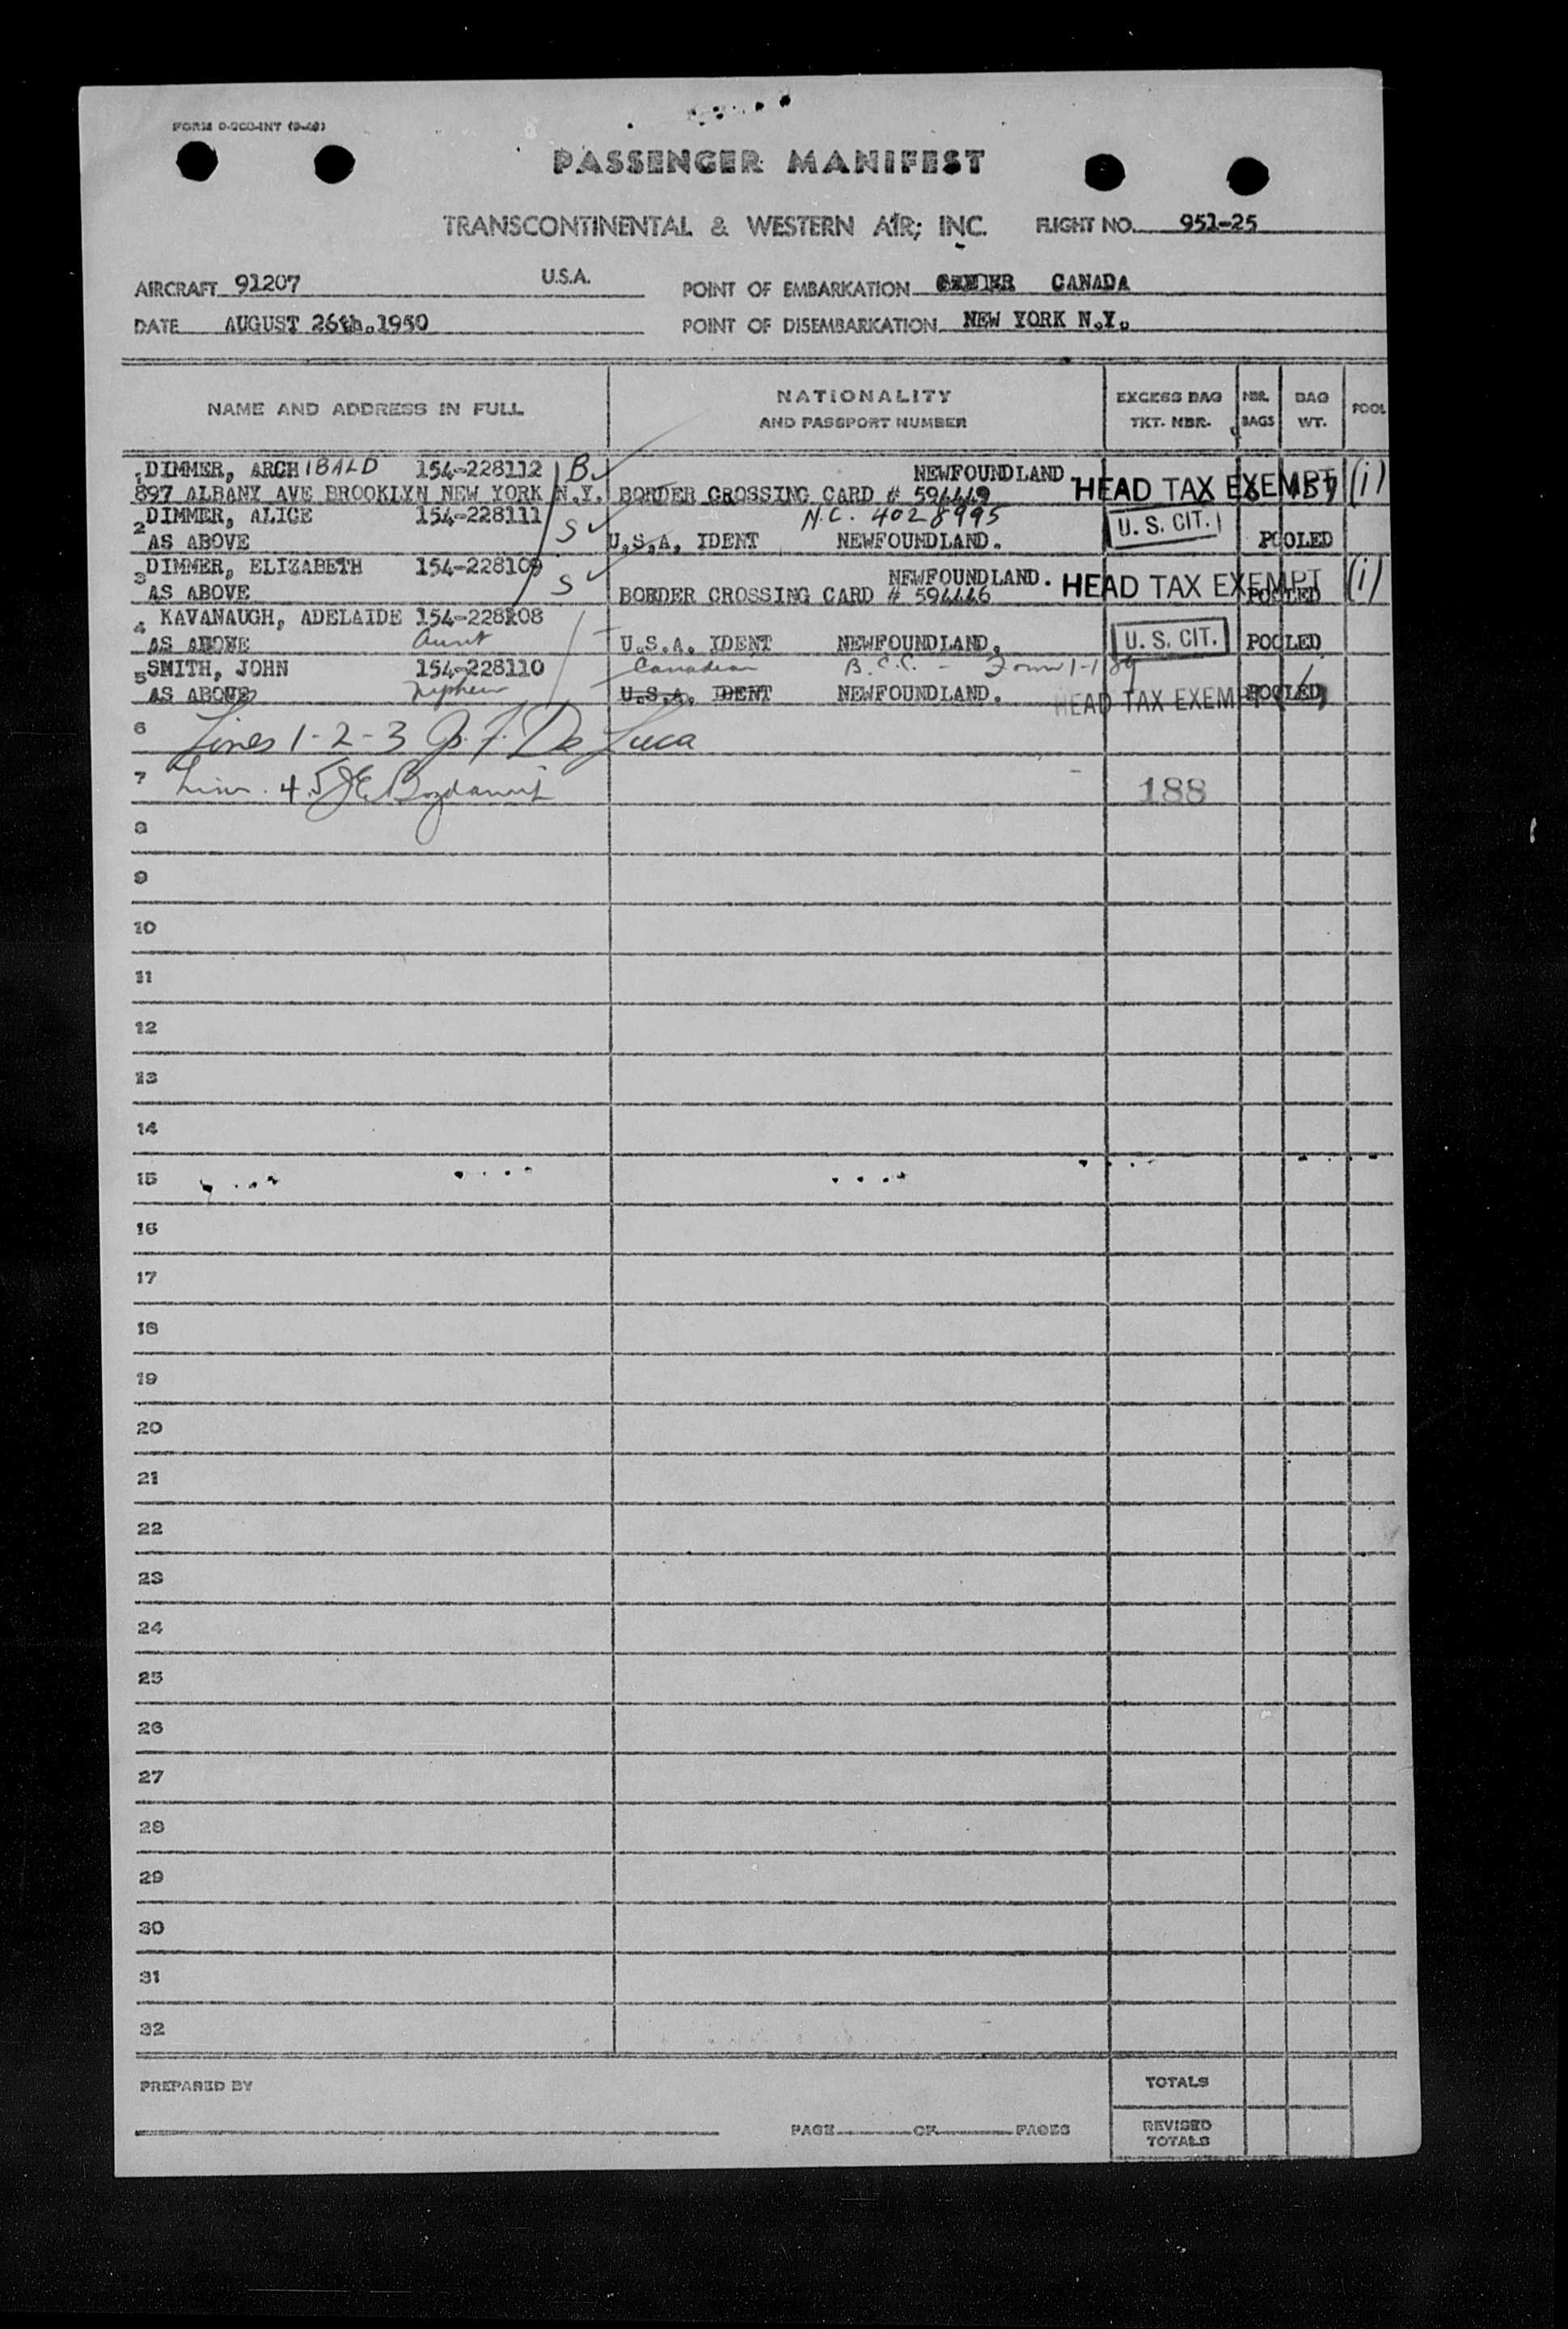 FORM O-200-INT (9-49)
PASSENGER MANIFEST
TRANSCONTINENTAL & WESTERN AIR, INC. FLIGHT NO. 951-25
AIRCRAFT 91207 U.S.A. POINT OF EMBARKATION GANDER CANADA
DATE AUGUST 26th.1950 POINT OF DISEMBARKATION NEW YORK N.Y.
NAME AND ADDRESS IN FULL NATIONALITY AND PASSPORT NUMBER EXCESS BAG TKT. NBR. NBR. BAGS BAG WT. POOL
1 DIMMER, ARCHIBALD 154-228112 B NEWFOUNDLAND HEAD TAX EXEMPT (i)
897 ALBANY AVE BROOKLYN NEW YORK N.Y. BORDER CROSSING CARD # 594449
2 DIMMER, ALICE 154-228111 S N.C. 4028995 U. S. CIT.
AS ABOVE U.S.A. IDENT NEWFOUNDLAND. POOLED
3 DIMMER, ELIZABETH 154-228109 S NEWFOUNDLAND. HEAD TAX EXEMPT (i)
AS ABOVE BORDER CROSSING CARD # 594446 POOLED
4 KAVANAUGH, ADELAIDE 154-228108
AS ABOVE Aunt U.S.A. IDENT NEWFOUNDLAND. U. S. CIT. POOLED
5 SMITH, JOHN 154-228110 Canadian B.C.C. - Form I-189
AS ABOVE Nephew U.S.A. IDENT NEWFOUNDLAND. HEAD TAX EXEMPT POOLED
6 Lines 1-2-3 De Luca
7 4.5 188
8
9
10
11
12
13
14
15
16
17
18
19
20
21
22
23
24
25
26
27
28
29
30
31
32
PREPARED BY TOTALS
PAGE OF PAGES REVISED TOTALS